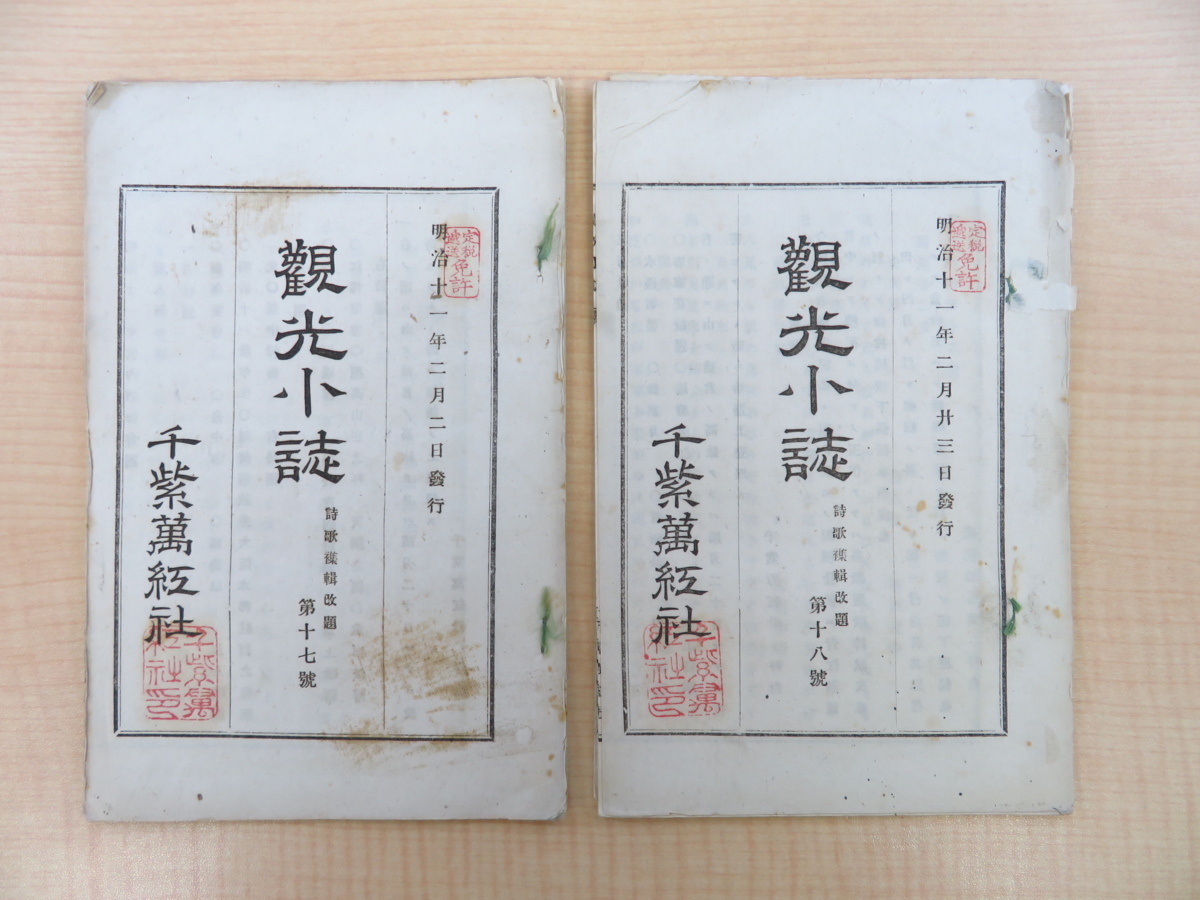 明治十一年二月二日發行
定税
遞送
免許
觀光小誌
詩歌襍輯改題
第十七號
千紫萬紅社
千紫萬
紅社印
明治十一年二月廿三日發行
定税
遞送
免許
觀光小誌
詩歌襍輯改題
第十八號
千紫萬紅社
千紫萬
紅社印